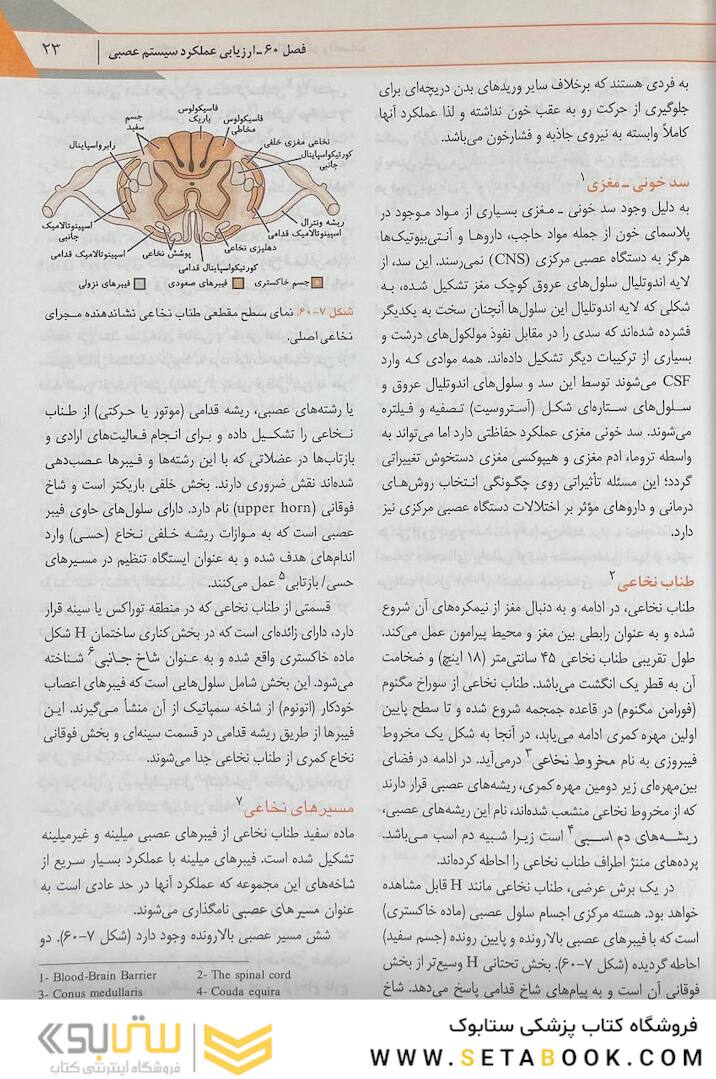 فصل ۶۰ـ ارزیابی عملکرد سیستم عصبی
۲۳
به فردی هستند که برخلاف سایر وریدهای بدن دریچه‌ای برای
جلوگیری از حرکت رو به عقب خون نداشته و لذا عملکرد آنها
کاملاً وابسته به نیروی جاذبه و فشارخون می‌باشد.
سد خونی ـ مغزی۱
به دلیل وجود سد خونی ـ مغزی بسیاری از مواد موجود در
پلاسمای خون از جمله مواد حاجب، داروها و آنتی‌بیوتیک‌ها
هرگز به دستگاه عصبی مرکزی (CNS) نمی‌رسند. این سد، از
لایه اندوتلیال سلول‌های عروق کوچک مغز تشکیل شده، به
شکلی که لایه اندوتلیال این سلول‌ها آنچنان سخت به یکدیگر
فشرده شده‌اند که سدی را در مقابل نفوذ مولکول‌های درشت و
بسیاری از ترکیبات دیگر تشکیل داده‌اند. همه موادی که وارد
CSF می‌شوند توسط این سد و سلول‌های اندوتلیال عروق و
سلول‌های ستاره‌ای شکل (آستروسیت) تصفیه و فیلتره
می‌شوند. سد خونی مغزی عملکرد حفاظتی دارد اما می‌تواند به
واسطه تروما، ادم مغزی و هیپوکسی مغزی دستخوش تغییراتی
گردد؛ این مسئله تأثیراتی روی چگونگی انتخاب روش‌های
درمانی و داروهای مؤثر بر اختلالات دستگاه عصبی مرکزی نیز
دارد.
طناب نخاعی۲
طناب نخاعی، در ادامه و به دنبال مغز از نیمکره‌های آن شروع
شده و به عنوان رابطی بین مغز و محیط پیرامون عمل می‌کند.
طول تقریبی طناب نخاعی ۴۵ سانتی‌متر (۱۸ اینچ) و ضخامت
آن به قطر یک انگشت می‌باشد. طناب نخاعی از سوراخ مگنوم
(فورامن مگنوم) در قاعده جمجمه شروع شده و تا سطح پایین
اولین مهره کمری ادامه می‌یابد، در آنجا به شکل یک مخروط
فیبروزی به نام مخروط نخاعی۳ درمی‌آید. در ادامه در فضای
بین‌مهره‌ای زیر دومین مهره کمری، ریشه‌های عصبی قرار دارند
که از مخروط نخاعی منشعب شده‌اند، نام این ریشه‌های عصبی،
ریشه‌های دم اسبی۴ است زیرا شبیه دم اسب می‌باشد.
پرده‌های مننژ اطراف طناب نخاعی را احاطه کرده‌اند.
در یک برش عرضی، طناب نخاعی مانند H قابل مشاهده
خواهد بود. هسته مرکزی اجسام سلول عصبی (ماده خاکستری)
است که با فیبرهای عصبی بالارونده و پایین رونده (جسم سفید)
احاطه گردیده (شکل ۷–۶۰). بخش تحتانی H وسیع‌تر از بخش
فوقانی آن است و به پیام‌های شاخ قدامی پاسخ می‌دهد. شاخ
فاسیکولوس
باریک
فاسیکولوس
مخاطی
جسم
سفید
نخاعی مغزی خلفی
کورتیکواسپاینال
جانبی
رابرواسپاینال
ریشه ونترال
اسپینوتالامیک قدامی
دهلیزی نخاعی
پوشش نخاعی
کورتیکواسپاینال قدامی
اسپینوتالامیک
جانبی
اسپینوتالامیک قدامی
جسم خاکستری
فیبرهای صعودی
فیبرهای نزولی
شکل ۷–۶۰. نمای سطح مقطعی طناب نخاعی نشاندهنده مجرای
نخاعی اصلی.
یا رشته‌های عصبی، ریشه قدامی (موتور یا حرکتی) از طناب
نخاعی را تشکیل داده و برای انجام فعالیت‌های ارادی و
بازتاب‌ها در عضلاتی که با این رشته‌ها و فیبرها عصب‌دهی
شده‌اند نقش ضروری دارند. بخش خلفی باریکتر است و شاخ
فوقانی (upper horn) نام دارد. دارای سلول‌های حاوی فیبر
عصبی است که به موازات ریشه خلفی نخاع (حسی) وارد
اندام‌های هدف شده و به عنوان ایستگاه تنظیم در مسیرهای
حسی/ بازتابی۵ عمل می‌کنند.
قسمتی از طناب نخاعی که در منطقه توراکس یا سینه قرار
دارد، دارای زائده‌ای است که در بخش کناری ساختمان H شکل
ماده خاکستری واقع شده و به عنوان شاخ جانبی۶ شناخته
می‌شود. این بخش شامل سلول‌هایی است که فیبرهای اعصاب
خودکار (اتونوم) از شاخه سمپاتیک از آن منشأ می‌گیرند. این
فیبرها از طریق ریشه قدامی در قسمت سینه‌ای و بخش فوقانی
نخاع کمری از طناب نخاعی جدا می‌شوند.
مسیرهای نخاعی۷
ماده سفید طناب نخاعی از فیبرهای عصبی میلینه و غیرمیلینه
تشکیل شده است. فیبرهای میلینه با عملکرد بسیار سریع از
شاخه‌های این مجموعه که عملکرد آنها در حد عادی است به
عنوان مسیرهای عصبی نامگذاری می‌شوند.
شش مسیر عصبی بالارونده وجود دارد (شکل ۷–۶۰). دو
1- Blood-Brain Barrier 2- The spinal cord
3- Conus medullaris 4- Couda equira
فروشگاه کتاب پزشکی ستابوک
WWW.SETABOOK.COM
ستابوک
فروشگاه اینترنتی کتاب